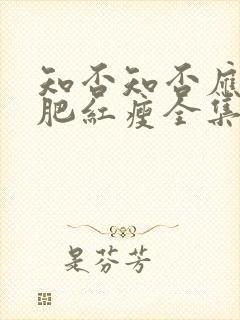 知否知否應
肥紅瘦全集
是芬芳